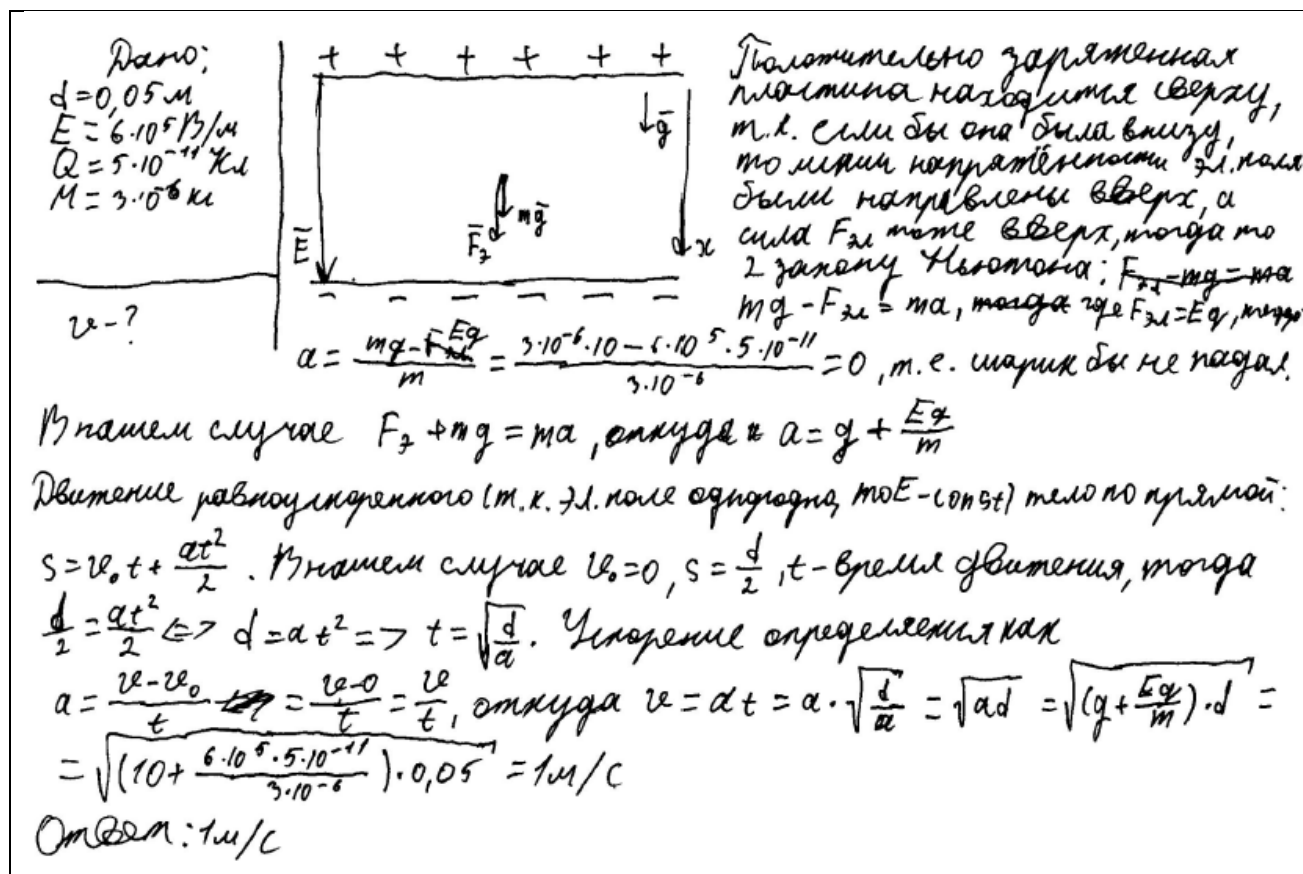 Дано:
d = 0,05 м
E = 6·10⁵ В/м
Q = 5·10⁻¹¹ Кл
M = 3·10⁻⁶ кг
v - ?
+ + + + + +
E̅
F̅э
mg̅
g̅
x
- - - - - -
Положительно заряженная
пластина находится сверху,
т.к. если бы она была внизу,
то линии напряжённости эл. поля
были направлены вверх, а
сила Fэл тоже вверх, тогда по
2 закону Ньютона: Fэл - mg = ma
mg - Fэл = ma, тогда где Fэл = Eq, тогда
a = (mg - Eq)/m = (3·10⁻⁶·10 - 6·10⁵·5·10⁻¹¹)/(3·10⁻⁶) = 0, т.е. шарик бы не падал.
В нашем случае Fэ + mg = ma, откуда a = g + Eq/m
Движение равноускоренного (т.к. эл. поле однородно, то E - const) тело по прямой:
S = v₀t + at²/2. В нашем случае v₀ = 0, s = d/2, t - время движения, тогда
d/2 = at²/2 <=> d = at² => t = √(d/a). Ускорение определяется как
a = (v - v₀)/t = (v - 0)/t = v/t, откуда v = at = a·√(d/a) = √(ad) = √((g + Eq/m)·d) =
= √((10 + (6·10⁵·5·10⁻¹¹)/(3·10⁻⁶))·0,05) = 1 м/с
Ответ: 1 м/с